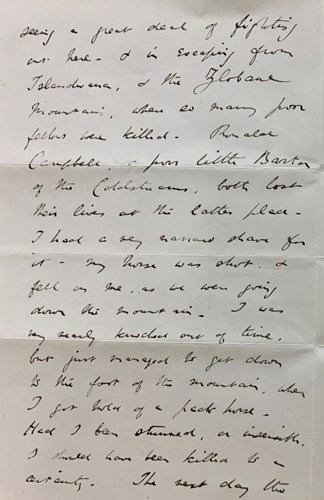 seeing a great deal of fighting
out here - & in escaping from
Islandwana, & the Zlobane
Mountain, where so many poor
fellows were killed - Ronald
Campbell, & poor little Barton
of the Coldstreams, both lost
their lives at the latter place -
I had a very narrow shave for
it - my horse was shot, &
fell on me, as we were going
down the mountain - I was
very nearly knocked out of time,
but just managed to get down
to the foot of the mountain, when
I got hold of a pack horse -
Had I been stunned, or insensible,
I should have been killed to a
certainty - The next day the